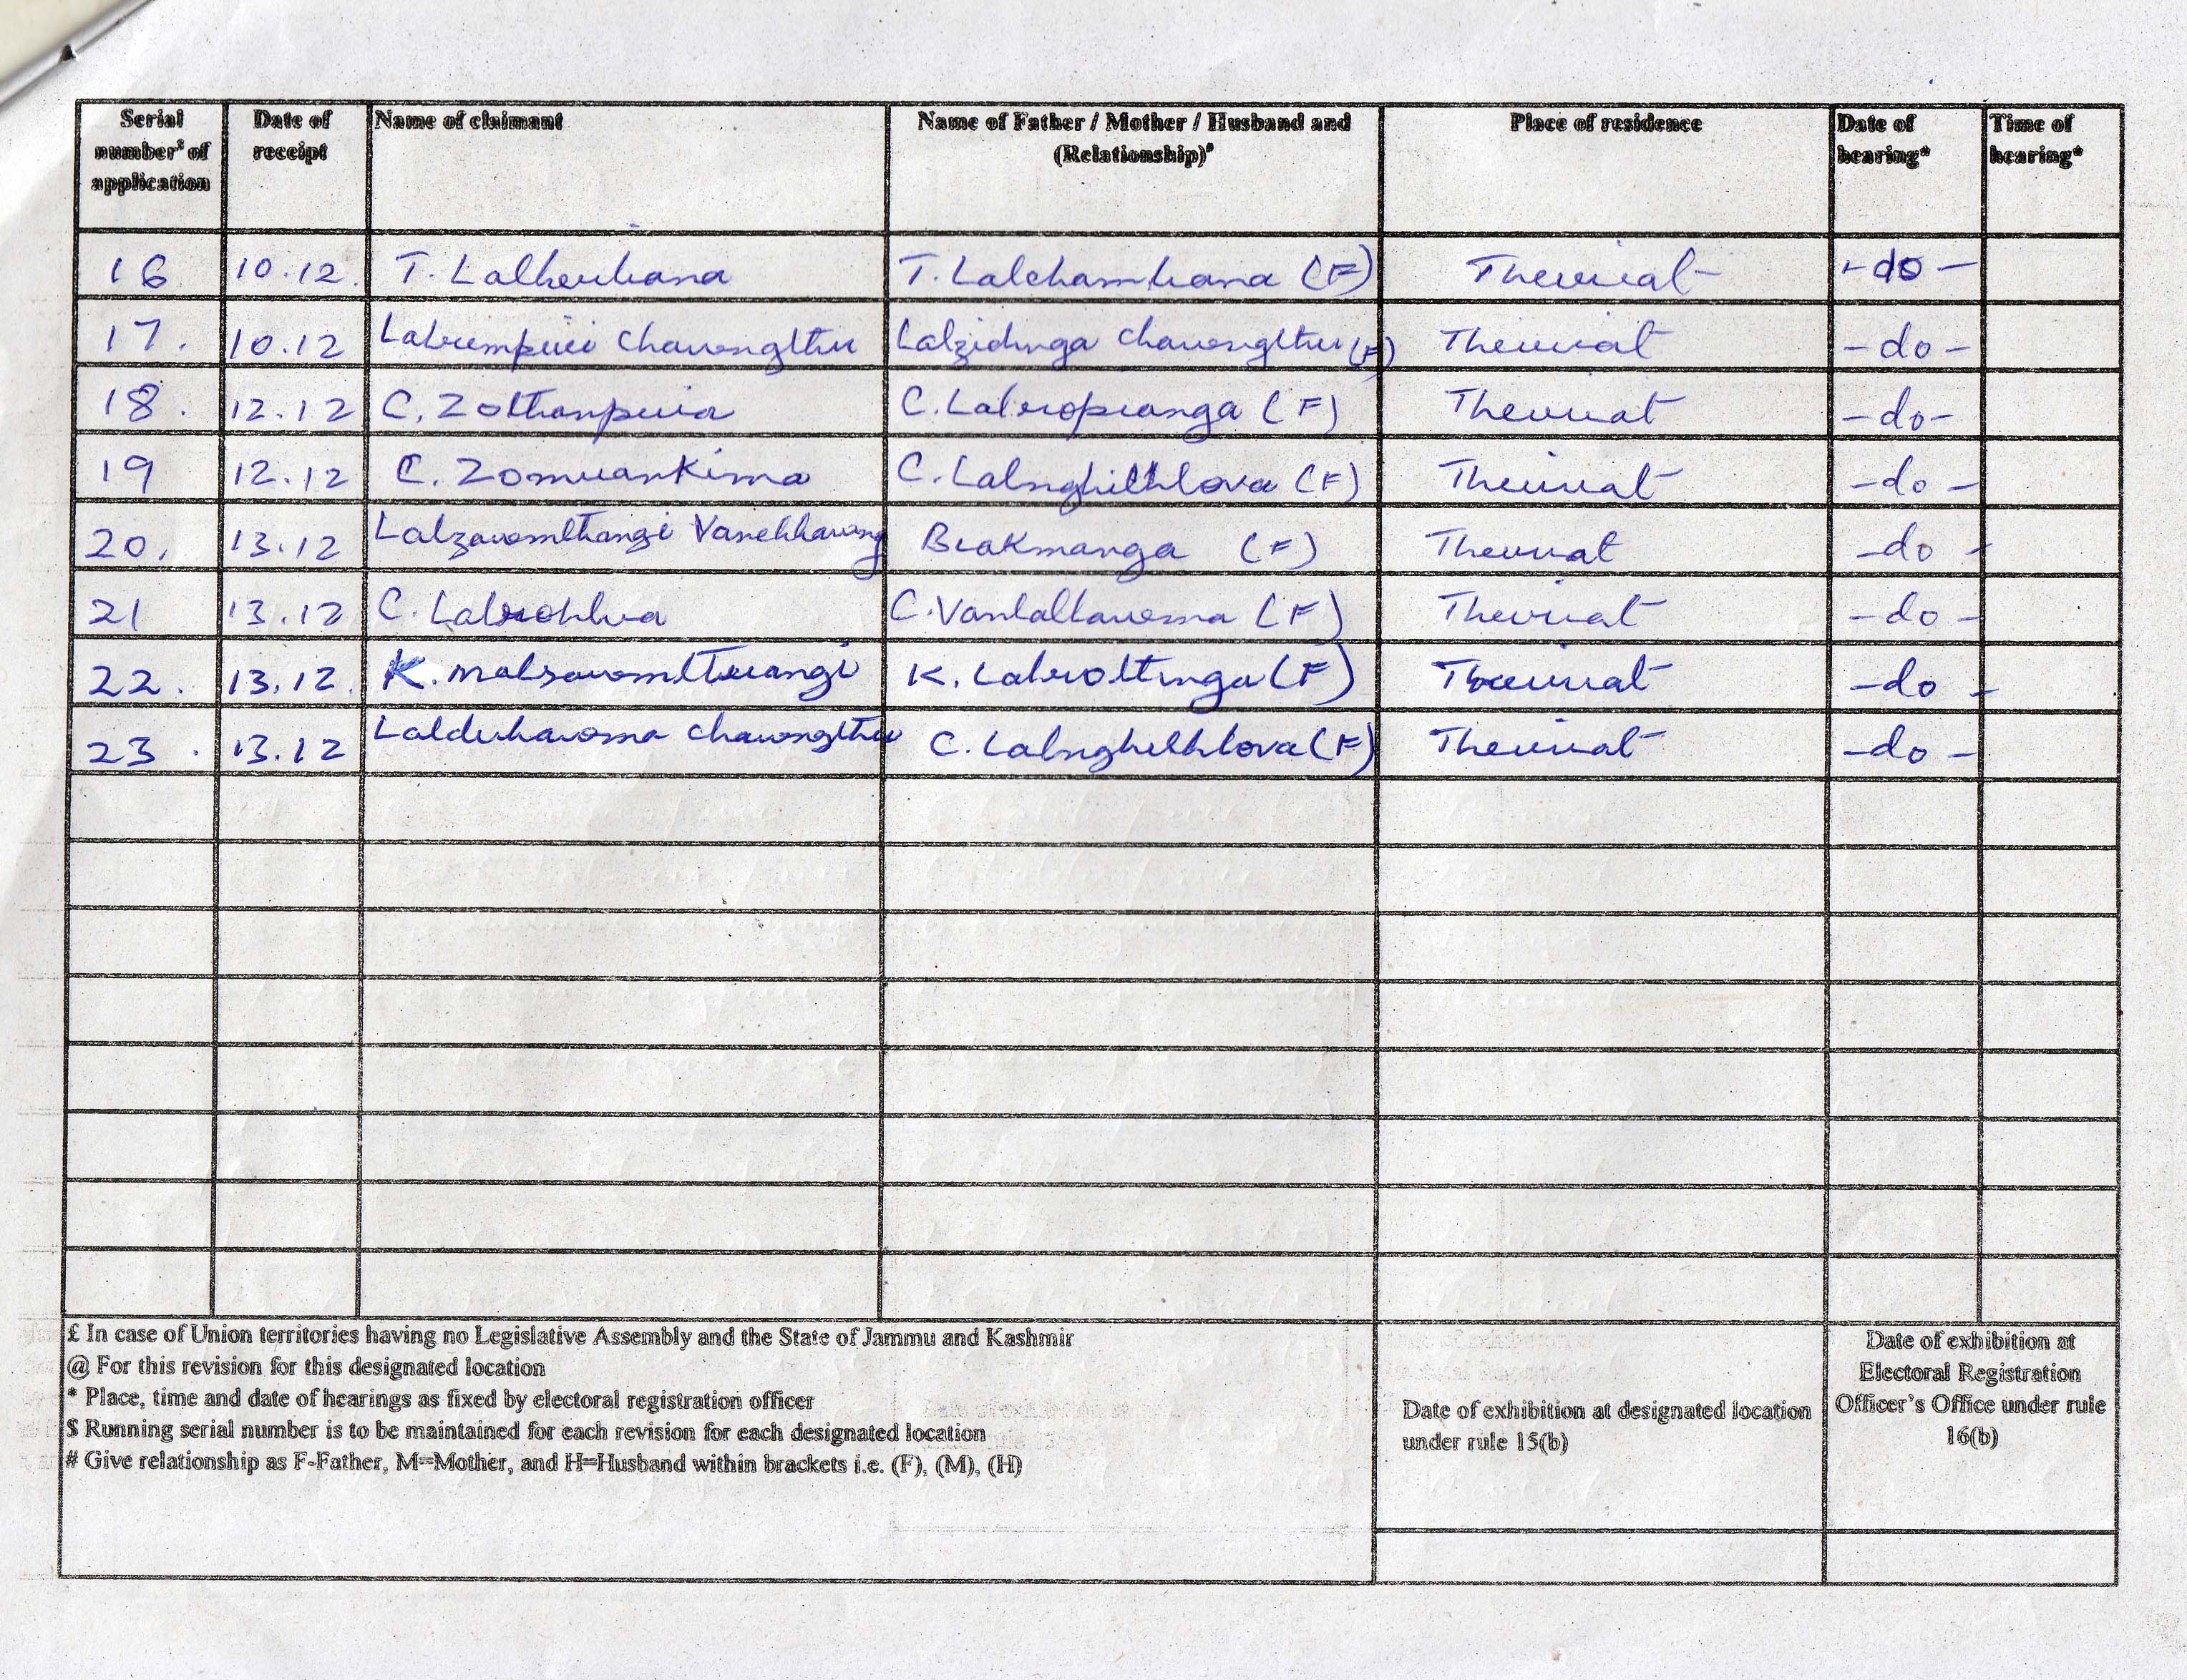 Serial number$ of application | Date of receipt | Name of claimant | Name of Father / Mother / Husband and (Relationship)# | Place of residence | Date of hearing* | Time of hearing*
16 | 10.12. | T. | T. (F) | Theiriat | -do-
17. | 10.12 | Lalrempuii Chawngthu | Lalzidinga Chawngthu (F) | Theiriat | -do-
18. | 12.12 | C. Zolthanpuia | C. Lalropianga (F) | Theiriat | -do-
19 | 12.12 | C. Zomuankima | C. Lalnghilhlova (F) | Theiriat | -do-
20. | 13.12 | Lalzawmthangi Vanchhawng | Biakmanga (F) | Theiriat | -do-
21 | 13.12 | C. Lalrohlua | C. Vanlallawma (F) | Theiriat | -do-
22. | 13.12. | K. | K. (F) | Theiriat | -do-
23. | 13.12 | Lalduhawma Chawngthu | C. Lalnghilhlova (F) | Theiriat | -do-
£ In case of Union territories having no Legislative Assembly and the State of Jammu and Kashmir
@ For this revision for this designated location
* Place, time and date of hearings as fixed by electoral registration officer
$ Running serial number is to be maintained for each revision for each designated location
# Give relationship as F-Father, M=Mother, and H=Husband within brackets i.e. (F), (M), (H)
Date of exhibition at designated location
under rule 15(b)
Date of exhibition at
Electoral Registration
Officer's Office under rule
16(b)